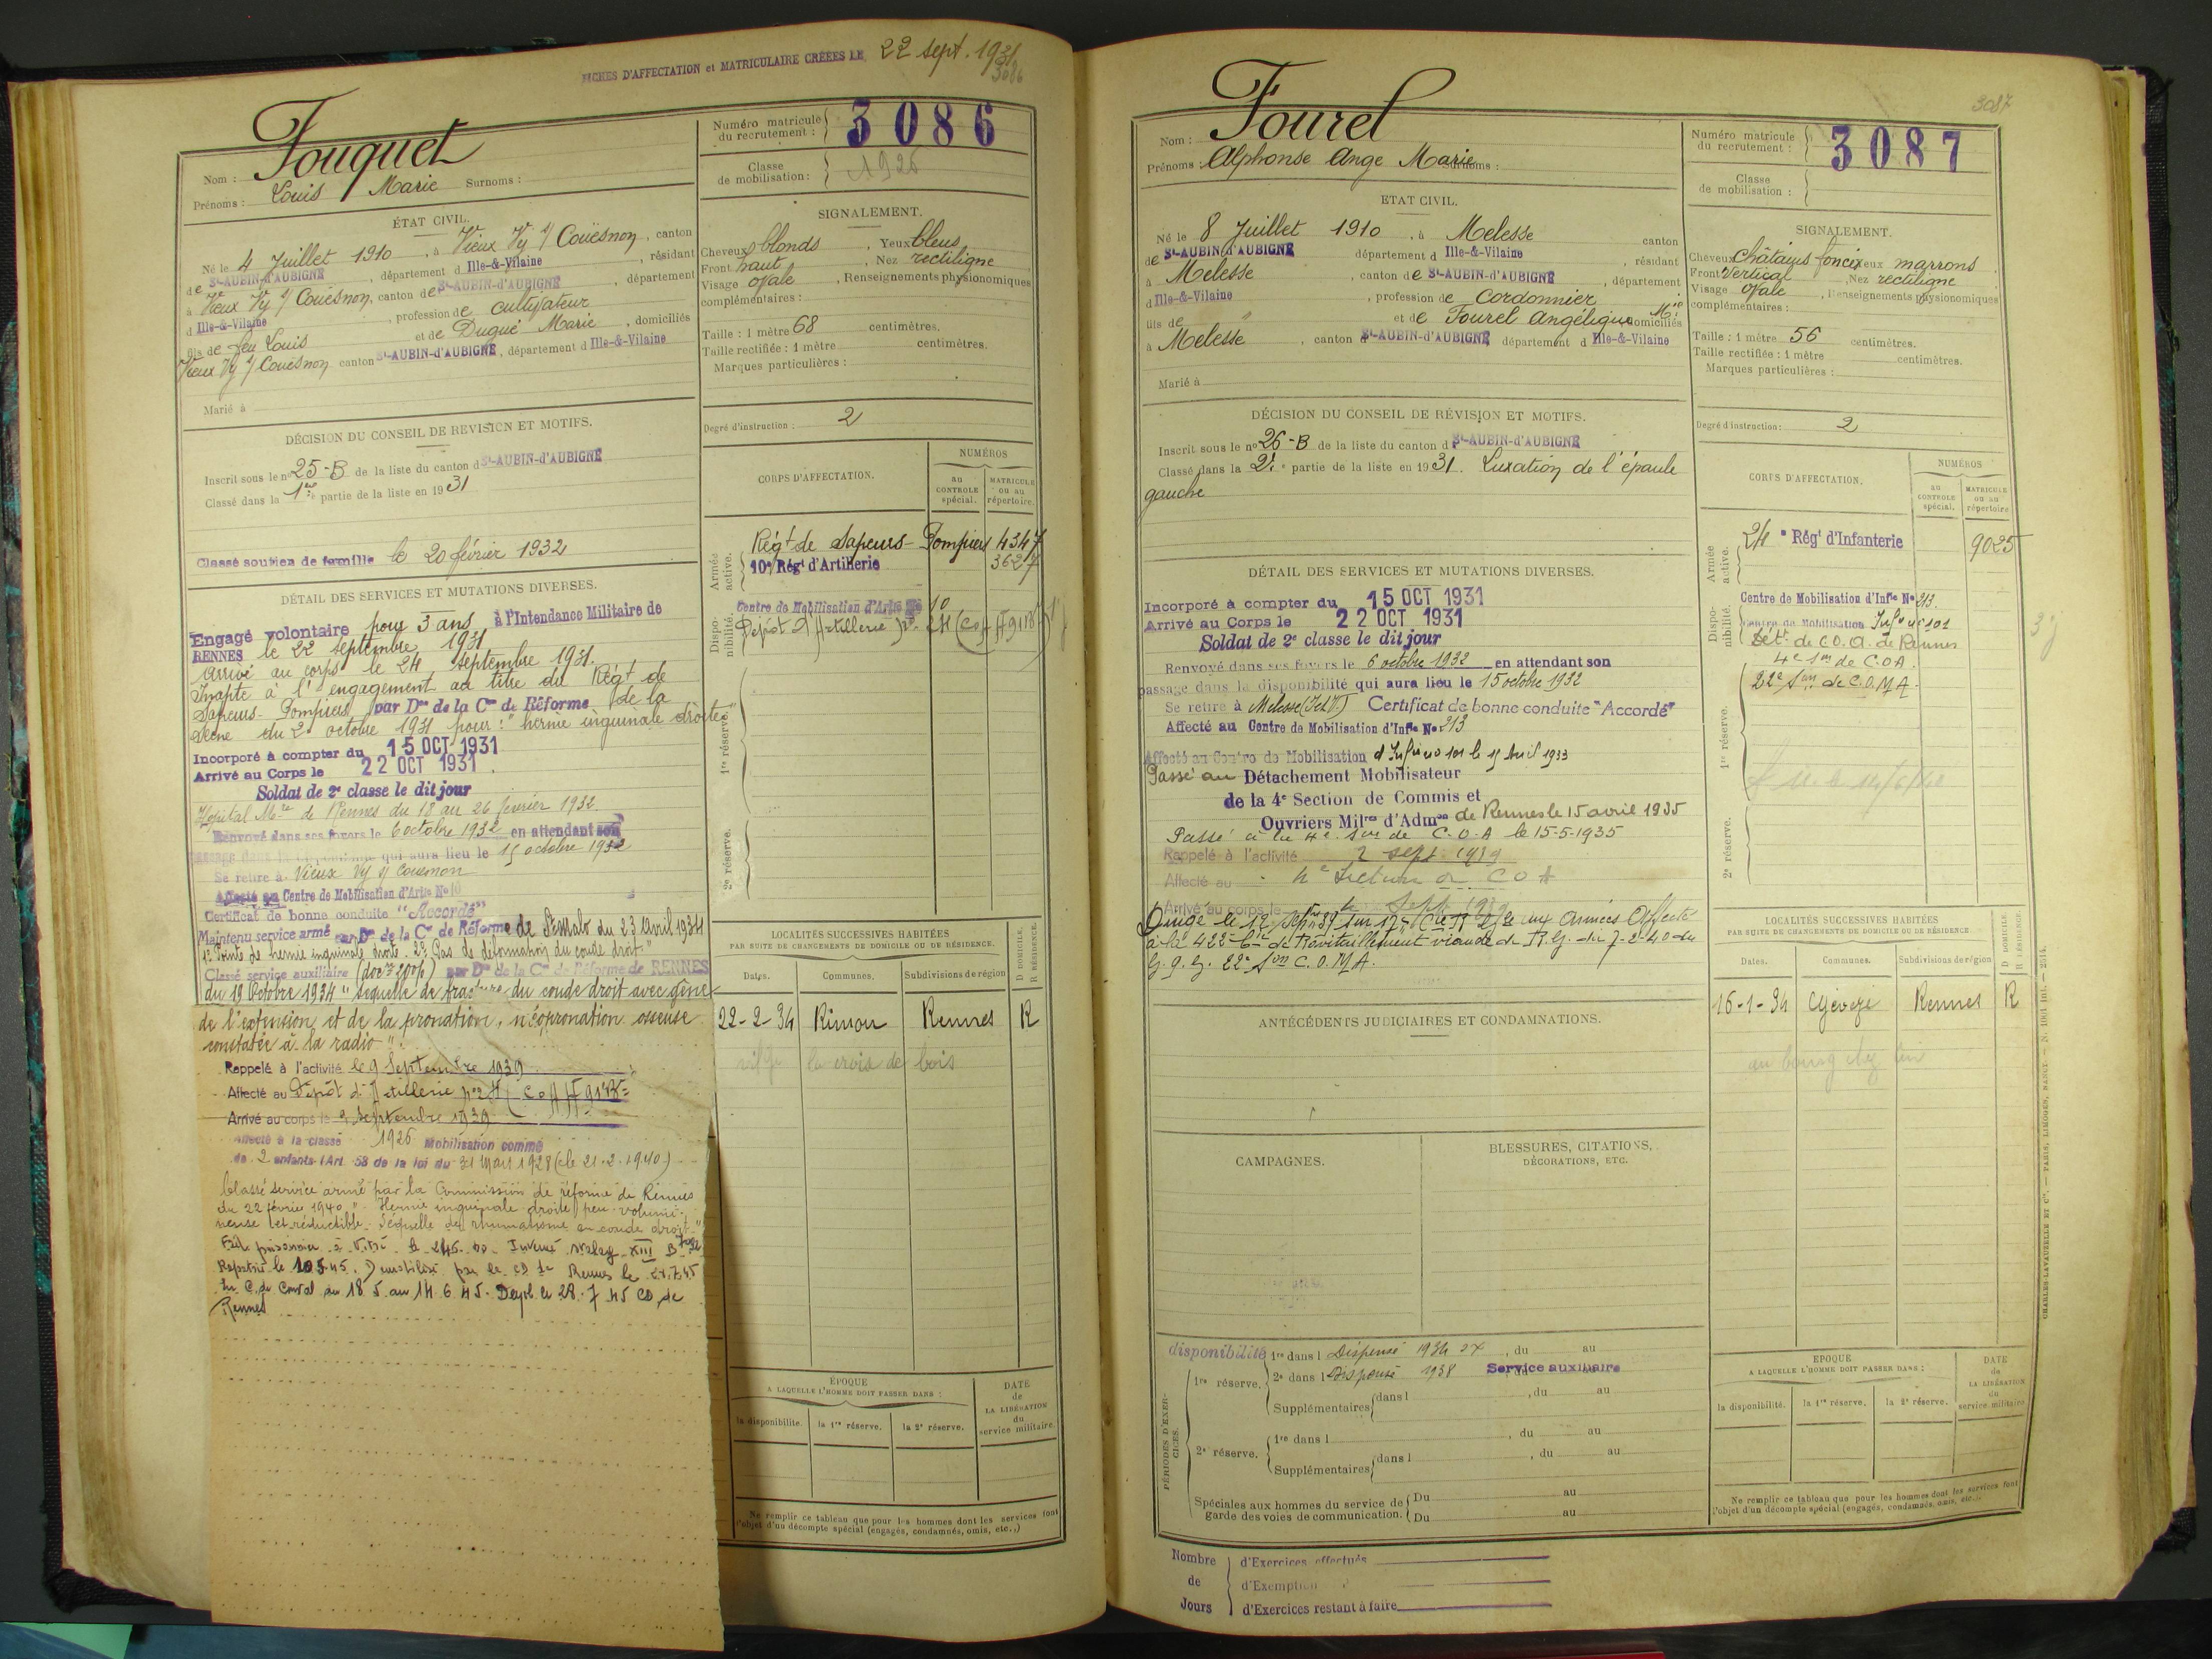 FICHES D'AFFECTATION et MATRICULAIRE CRÉÉES LE 22 sept. 1931
3086
Nom : Fouquet
Prénoms : Louis Marie Surnoms :
Numéro matricule du recrutement : 3086
Classe de mobilisation : 1926
ÉTAT CIVIL.
Né le 4 Juillet 1910, à Vieux Vy s/ Couësnon, canton
de St-AUBIN-d'AUBIGNÉ, département d Ille-&-Vilaine, résidant
à Vieux Vy s/ Couësnon, canton de St-AUBIN-d'AUBIGNÉ, département
d Ille-&-Vilaine, profession de cultivateur
fils de feu Louis et de Dugué Marie, domiciliés
Vieux Vy s/ Couësnon canton St-AUBIN-d'AUBIGNÉ, département d Ille-&-Vilaine
Marié à
SIGNALEMENT.
Cheveux blonds, Yeux bleus
Front haut, Nez rectiligne
Visage ovale, Renseignements physionomiques
complémentaires :
Taille : 1 mètre 68 centimètres.
Taille rectifiée : 1 mètre centimètres.
Marques particulières :
Degré d'instruction : 2
DÉCISION DU CONSEIL DE REVISION ET MOTIFS.
Inscrit sous le n° 25-B de la liste du canton d St-AUBIN-d'AUBIGNÉ
Classé dans la 1re partie de la liste en 1931
Classé soutien de famille le 20 février 1932
DÉTAIL DES SERVICES ET MUTATIONS DIVERSES.
Engagé volontaire pour 3 ans, à l'Intendance Militaire de
RENNES le 22 septembre 1931
Arrivé au corps le 24 septembre 1931.
Inapte à l'engagement au titre du Régt de
Sapeurs-Pompiers par Don de la Con de Réforme de la
Seine du 2 octobre 1931 pour : "hernie inguinale droite"
Incorporé à compter du 15 OCT 1931
Arrivé au Corps le 22 OCT 1931.
Soldat de 2e classe le dit jour
Hôpital Mre de Rennes du 18 au 26 février 1932
Renvoyé dans ses foyers le 6 octobre 1932 en attendant son
qui aura lieu le 15 octobre 1932
Se retire à Vieux Vy s/ Couesnon
Affecté au Centre de Mobilisation d'Artie N° 10
Certificat de bonne conduite "Accordé"
Maintenu service armé par Don de la Con de Réforme de St Malo du 23 Avril 1934
"1° Pointe de hernie inguinale droite. 2° Pas de déformation du coude droit."
Classé service auxiliaire par Don de la Con de Réforme de RENNES
du 19 Octobre 1934 "séquelle de fracture du coude droit avec gêne
de l'extension et de la pronation, néopronation osseuse
constatée à la radio".
Rappelé à l'activité le 9 Septembre 1939
Affecté au Dépôt d'Artillerie
Arrivé au corps le 9 Septembre 1939
Affecté à la classe 1926 Mobilisation comme
de 2 enfants (Art. 58 de la loi du 31 Mars 1928 (le 21-2-1940)
Classé service armé par la Commission de réforme de Rennes
du 22 février 1940 "Hernie inguinale droite peu volumi-
neuse et réductible. Séquelle de rhumatisme au coude droit"
Fait prisonnier à Interné stalag XIII B
Rapatrié le 10 5 45. Démobilisé par le CD de Rennes le
18.5. au 14.6.45. le 28.7.45 CD de
Rennes
CORPS D'AFFECTATION.
NUMÉROS
au CONTROLE spécial.
MATRICULE ou au répertoire.
Armée active.
Régt de Sapeurs-Pompiers 4347
10e Régt d'Artillerie 3627
Disponibilité.
Centre de Mobilisation d'Artie 10
Dépôt d'Artillerie
1re réserve.
2e réserve.
LOCALITÉS SUCCESSIVES HABITÉES
PAR SUITE DE CHANGEMENTS DE DOMICILE OU DE RÉSIDENCE.
D DOMICILE. R RÉSIDENCE.
Dates. Communes. Subdivisions de région
22-2-34 Rimou Rennes R
la croix de bois
ÉPOQUE
A LAQUELLE L'HOMME DOIT PASSER DANS :
DATE de LA LIBÉRATION du service militaire.
la disponibilité. la 1re réserve. la 2e réserve.
Ne remplir ce tableau que pour les hommes dont les services font
l'objet d'un décompte spécial (engagés, condamnés, omis, etc.,)
3087
Nom : Fourel
Prénoms : Alphonse Ange Marie Surnoms :
Numéro matricule du recrutement : 3087
Classe de mobilisation :
ETAT CIVIL.
Né le 8 Juillet 1910, à Melesse canton
de St-AUBIN d'AUBIGNÉ département d Ille-&-Vilaine, résidant
à Melesse, canton de St-AUBIN-d'AUBIGNÉ, département
d Ille-&-Vilaine, profession de Cordonnier
fils de " et de Fourel Angélique Mie domiciliés
à Melesse, canton St-AUBIN-d'AUBIGNÉ département d Ille-&-Vilaine
Marié à
SIGNALEMENT.
Cheveux Châtains foncés Yeux marrons
Front Vertical, Nez rectiligne
Visage Ovale, Renseignements physionomiques
complémentaires :
Taille : 1 mètre 56 centimètres.
Taille rectifiée : 1 mètre centimètres.
Marques particulières :
Degré d'instruction : 2
DÉCISION DU CONSEIL DE RÉVISION ET MOTIFS.
Inscrit sous le n° 26-B de la liste du canton d St-AUBIN-d'AUBIGNÉ
Classé dans la 2e partie de la liste en 1931. Luxation de l'épaule
gauche
DÉTAIL DES SERVICES ET MUTATIONS DIVERSES.
Incorporé à compter du 15 OCT 1931
Arrivé au Corps le 22 OCT 1931
Soldat de 2e classe le dit jour
Renvoyé dans ses foyers le 6 octobre 1932 en attendant son
passage dans la disponibilité qui aura lieu le 15 octobre 1932
Se retire à Melesse (I et V) Certificat de bonne conduite "Accordé"
Affecté au Centre de Mobilisation d'Infie N° 213
Affecté au Centre de Mobilisation d'Infie n° 101 le 15 Avril 1933
Passé au Détachement Mobilisateur
de la 4e Section de Commis et
Ouvriers Milres d'Admon de Rennes le 15 avril 1935
Passé à la 4e Son de C.O.A le 15-5-1935
Rappelé à l'activité 2 sept 1939
Affecté au 4e Section de COA
Arrivé au corps le 4 Sept 1939
Dirigé le 12 sept 39 sur aux armées Affecté
à la 422e Cie de Ravitaillement viande de R.G. du 7-2-40 du
G.Q.G. 22e Son C.O.M.A.
CORPS D'AFFECTATION.
NUMÉROS
au CONTROLE spécial.
MATRICULE ou au répertoire
Armée active.
24e Régt d'Infanterie 9025
Disponibilité.
Centre de Mobilisation d'Infie N° 213.
Centre de Mobilisation Infie n° 101
Dét. de C.O.A. de Rennes
4e Son de C.O.A.
22e Son de C.O.M.A.
1re réserve.
2e réserve.
ANTÉCÉDENTS JUDICIAIRES ET CONDAMNATIONS.
LOCALITÉS SUCCESSIVES HABITÉES
PAR SUITE DE CHANGEMENTS DE DOMICILE OU DE RÉSIDENCE.
D DOMICILE. R RÉSIDENCE.
Dates. Communes. Subdivisions de région
16-1-34 Gévezé Rennes R
au bourg chez lui
CAMPAGNES.
BLESSURES, CITATIONS,
DÉCORATIONS, ETC.
PÉRIODES D'EXERCICES.
disponibilité
1re réserve. 1re dans l Dispensé 1934, du au
2e dans l Dispensé 1938 Service auxiliaire
Supplémentaires dans l, du au
2e réserve. 1re dans l, du au
Supplémentaires dans l, du au
Spéciales aux hommes du service de garde des voies de communication. Du au
Du au
ÉPOQUE
A LAQUELLE L'HOMME DOIT PASSER DANS :
DATE de LA LIBÉRATION du service militaire
la disponibilité. la 1re réserve. la 2e réserve.
Ne remplir ce tableau que pour les hommes dont les services font
l'objet d'un décompte spécial (engagés, condamnés, omis, etc.).
Nombre de Jours
d'Exercices effectués
d'Exemption
d'Exercices restant à faire
CHARLES-LAVAUZELLE ET Cie. — PARIS, LIMOGES, NANCY